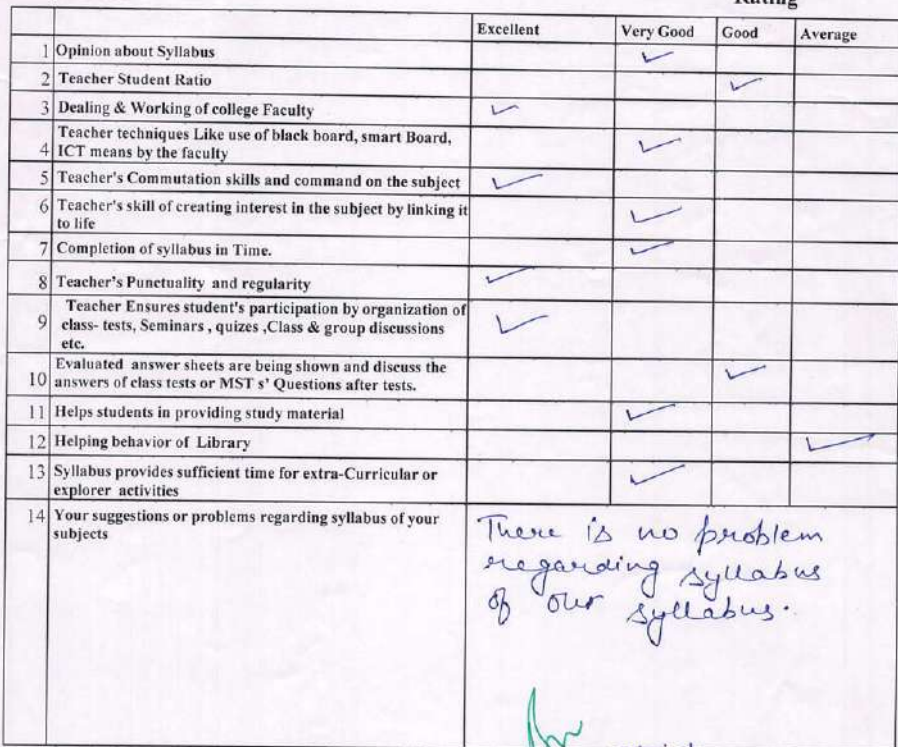 Rating
Excellent Very Good Good Average
1 Opinion about Syllabus ✓
2 Teacher Student Ratio ✓
3 Dealing & Working of college Faculty ✓
Teacher techniques Like use of black board, smart Board,
4 ICT means by the faculty ✓
5 Teacher's Commutation skills and command on the subject ✓
6 Teacher's skill of creating interest in the subject by linking it
to life ✓
7 Completion of syllabus in Time. ✓
8 Teacher's Punctuality and regularity ✓
Teacher Ensures student's participation by organization of
9 class- tests, Seminars , quizes ,Class & group discussions ✓
etc.
Evaluated answer sheets are being shown and discuss the
10 answers of class tests or MST s' Questions after tests. ✓
11 Helps students in providing study material ✓
12 Helping behavior of Library ✓
13 Syllabus provides sufficient time for extra-Curricular or
explorer activities ✓
14 Your suggestions or problems regarding syllabus of your
subjects
There is no problem
regarding syllabus
of our syllabus.